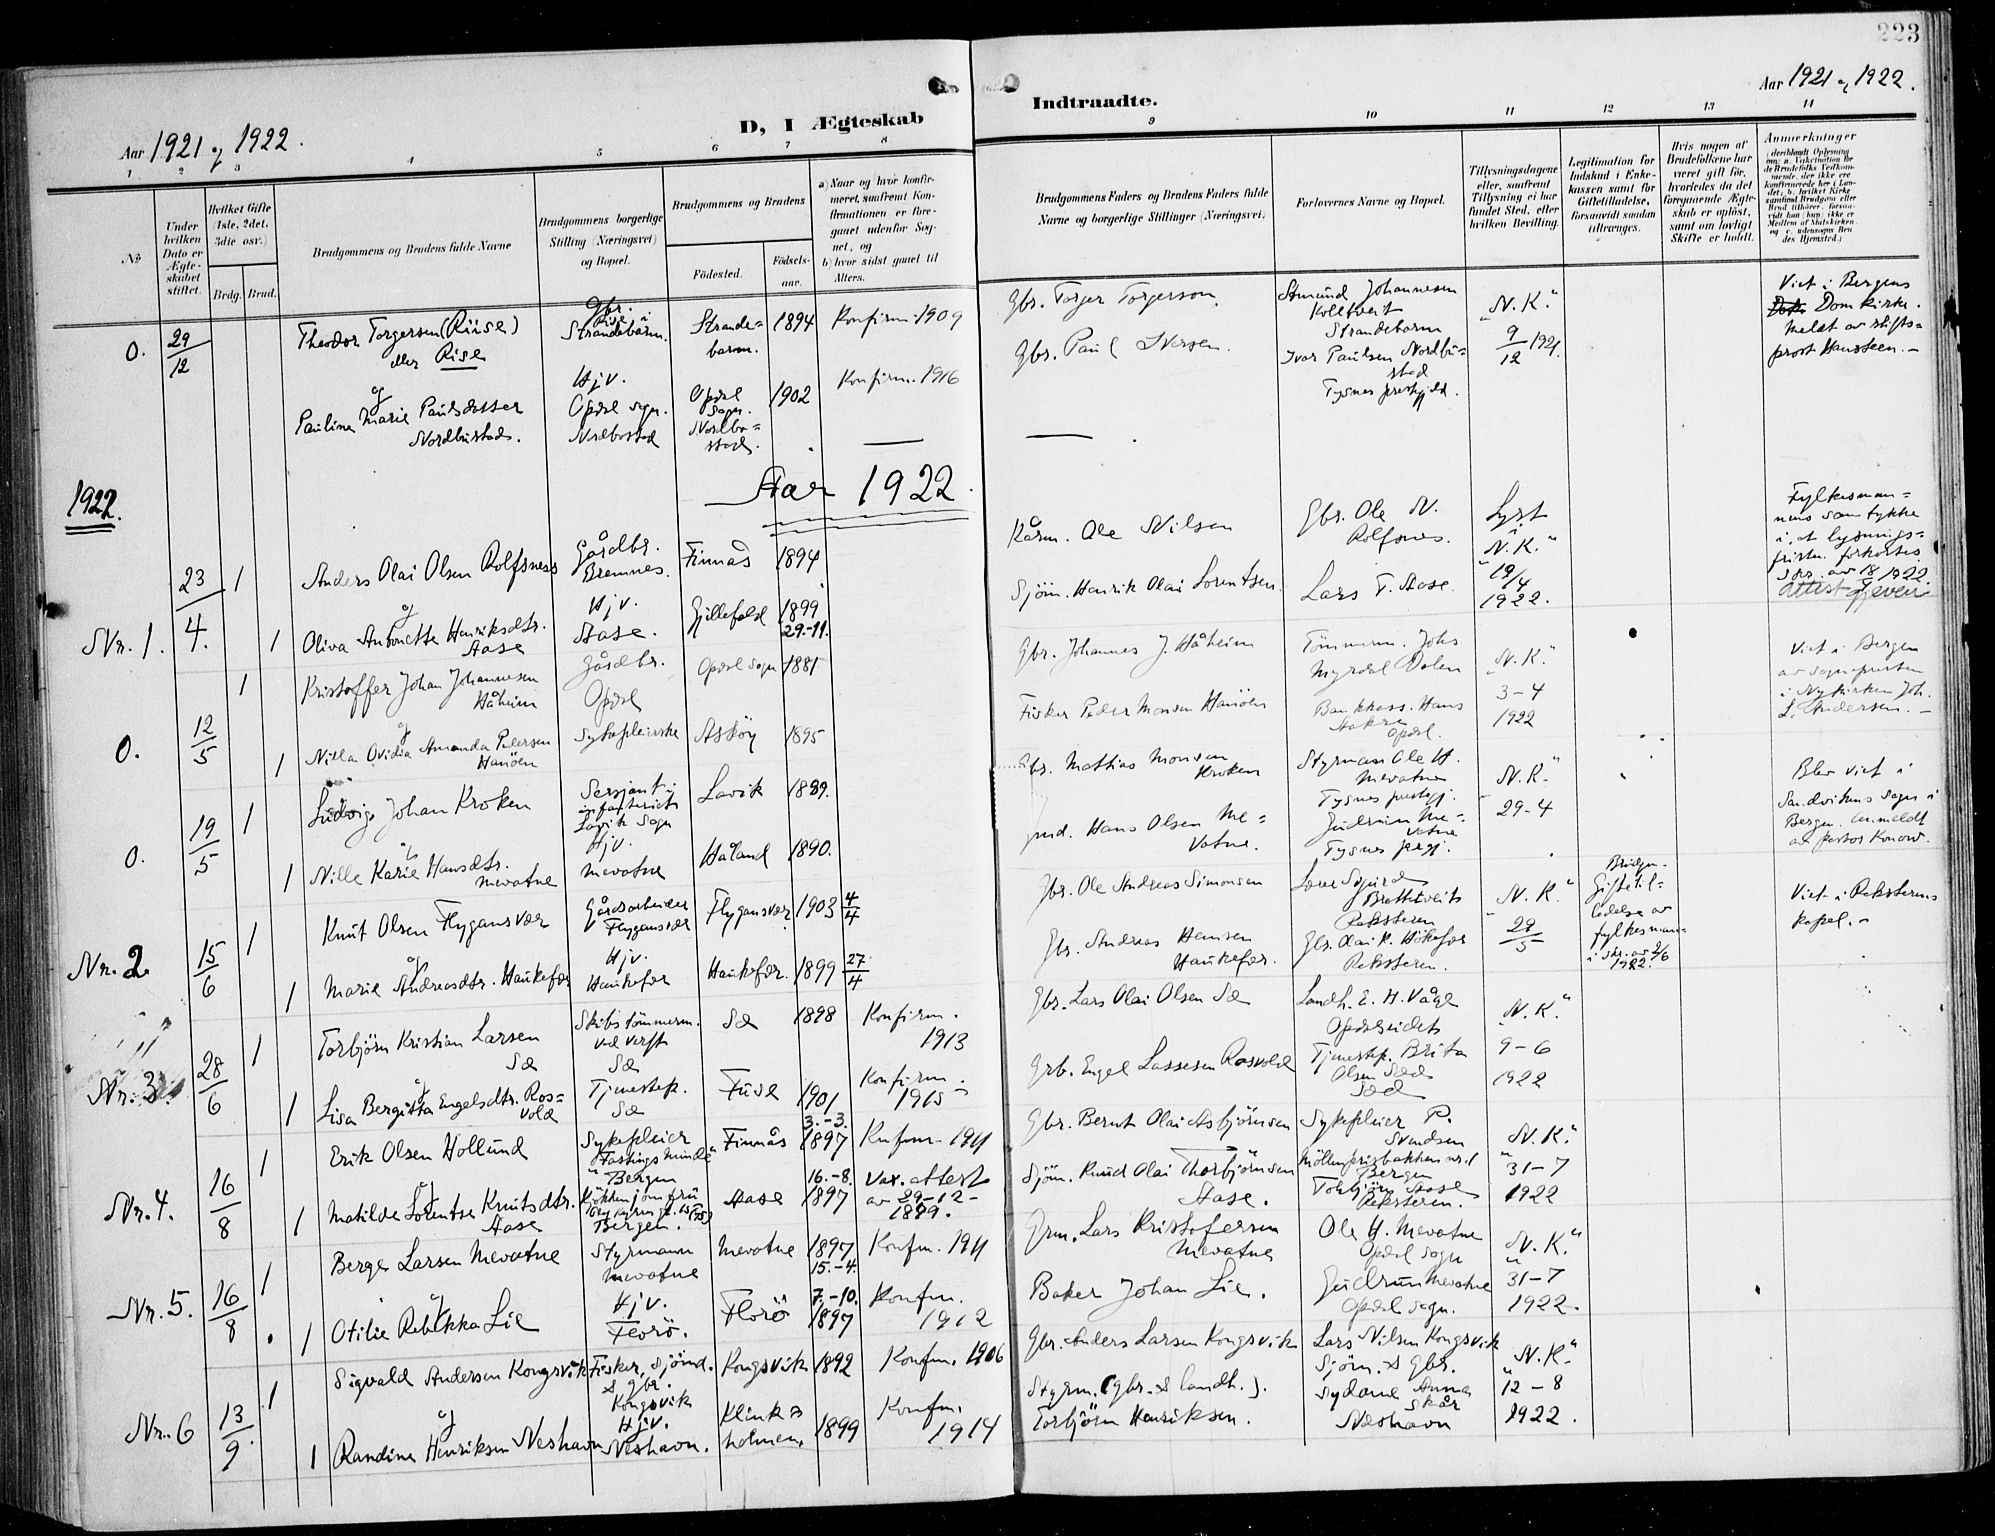 223
Aar 1921 og 1922.
D, I Ægteskab
Indtraadte.
Aar 1921 og 1922.
1 2 3 4 5 6 7 8
9 10 11 12 13 14
No
Under hvilken Dato er Ægteskabet stiftet.
Hvilket Gifte (1ste, 2det, 3die osv.)
Brdg. Brud.
Brudgommens og Brudens fulde Navne
Brudgommens borgerlige Stilling (Næringsvei) og Bopæl.
Brudgommens og Brudens
Födested.
Födselsaar.
a) Naar og hvor konfirmeret, saafremt Konfirmationen er foregaaet udenfor Sognet, og
b) hvor sidst gaaet til Alters.
Brudgommens Faders og Brudens Faders fulde Navne og borgerlige Stillinger (Næringsvei)
Forlovernes Navne og Bopæl.
Tillysningsdagene eller, saafremt Tillysning ei har fundet Sted, efter hvilken Bevilling.
Legitimation for Indskud i Enkekassen samt for Giftetilladelse, forsaavidt saadan tiltrænges.
Hvis nogen af Brudefolkene har været gift før, hvorledes da det foregaaende Ægteskab er opløst, samt om lovligt Skifte er holdt.
Anmerkninger
0. 29/12
Theodor Torgersen (Riise)
eller Rise
Gbr.
Rise i
Strandebarm.
Strande=
barm.
1894
Konfirm. 1909
Gbr. Torger Torgerson.
Amund Johannesen
Kolltveit
Strandebarm
"N. K."
9/12 1921.
Viet i Bergens
Domkirke.
Meldt av stifts=
prost Hansteen. -
og
Pauline Marie Paulsdatter
Nordbustad.
Hjv.
Opdal sogn.
Nordbustad
Opdal
Sogn.
Nordbu=
stad.
1902
Konfirm. 1916
Gbr. Paul Iversen.
Ivar Paulsen Nordbu=
stad
Tysnes prestgjeld.
1922.
Aar 1922.
Nr. 1. 23/4. 1
Anders Olai Olsen Rolfsness
Gårdbr.
Bremnes.
Finnås
1894
Kårm. Ole Nilsen
Gbr. Ole N.
Rolfsnes.
Lyst
i
"N. K."
19/4
1922.
Fylkesman=
nens samtykke
i, at lysnings=
fristen forkortes
skr. av 18/4 1922.
Attest given
og
1 Oliva Antonette Henriksdtr.
Aase
Hjv.
Aase.
1899
29.-11.
Sjöm. Henrik Olai Lorentsen.
Lars T. Aase.
0. 12/5 1
Kristoffer Johan Johannesen
Håheim
Gårdbr.
Opdal
Opdal sogn
1881
Gbr. Johannes J. Håheim
Tömmerm. Johs
Myrdal Dalen
"N. K."
3-4
1922
Viet i Bergen
av sogneprsten
i Nykirken Joh.
L. Andersen. -
og
1 Nilla Ovidia Amanda Petersen
Hanöen
Sykepleierske
Asköy
1895
Fisker Peder Monsen Hanöen
Bankkass. Hans
Opdal.
0. 19/5 1
Ludvig Johan Kroken
Sersjant i
infanteriet
Lavik Sogn
Lavik
1889.
Gbr. Mathias Monsen
Kroken
Styrman Ole H.
Mevatne
Tysnes prestgj.
"N. K."
29-4
Blev viet i
Sandvikens Sogn i
Bergen. Anmeldt
av pastor Konow.
og
1 Nille Karie Hansdtr.
Mevatne
Hjv.
Mevatne
Håland
1890.
Hans Olsen Me=
vatne.
Gudrun Me=
vatne
Tysnes prgj.
Nr. 2. 15/6 1
Knut Olsen Flygansvær
Gårdsarbeider
Flygansvær
Flygansvær
1903 4/4
Gbr. Ole Andreas Simonsen
Lærer Sjurd
Brattetveit
Reksteren
"N. K."
28/5
Brudgm.
Giftetil=
ladelse av
fylkesman=
i skr. av 2/6
1922.
Viet i Reksterens
kapel. -
og
1 Marie Andreasdtr. Haukefær
Hjv.
Haukefær
Haukefær.
1899 27/4
Gbr. Andreas Hansen
Haukefær.
Gbr. Olai K. Hökefær
Reksteren.
Nr. 3. 28/6 1
Torbjörn Kristian Larsen
Sæ
Skibstömmerm.
ved verft
Sæ
Sæ
1898
Konfirm.
1913
Gbr. Lars Olai Olsen Sæ
Landh. E. H. Våge
Opdalseidet
"N. K."
9-6
1922
og
1 Lisa Bergitta Engelsdtr. Ros=
vold
Tjenestep.
Sæ
Fusa
1901
Konfirm.
1915
Grb. Engel Lassesen Rosvold
Tjenestep. Brita
Olsen Sæd
Sæd
Nr. 4. 16/8 1
Erik Olsen Hollund
Sykepleier
"Fastings Minde"
Bergen
Finnås
3.-3.
1897
Knfm. 1911
Gbr. Bernt Olai Asbjörnsen
Sykepleier P.
Svendsen
Möllenprisbakken nr. 1
Bergen
"N. K."
31-7
1922
og
1 Matilde Lorentse Knutsdtr.
Aase
Kökkenjomfru
Bergen.
Aase
16.-8.
1897
Vax. attest
av 29-12-
1899.
Sjöm. Knud Olai Thorbjörnsen
Aase.
Torbjörn Aase
Reksteren.
Nr. 5. 16/8 1
Berge Larsen Mevatne
Styrmann
Mevatne
Mevatne
1897
15.-4.
Konfm. 1911
Grm. Lars Kristofersen
Mevatne
Ole H. Mevatne
Opdal sogn
"N. K."
31-7
1922.
og
1 Otilie Rebekka Lie
Hjv.
Florö.
Florö
7.-10.
1897
Konfm.
1912
Baker Johan Lie.
Gudrun Mevatne
Opdal sogn.
Nr. 6 13/9. 1
Sigvald Andersen Kongsvik
Fisker, sjömd.
& gbr.
Kongsvik
Kongsvik
1892
Konfm. 1906
Gbr. Anders Larsen Kongsvik
Lars Nilsen Kongsvik
Sjöm. & Gbr.
"N. K."
12-8
1922.
og
1 Randine Henriksen Neshavn
Hjv.
Neshavn.
Klinke=
holmen,
1899
Konfm.
1914
Styrm. (gbr. & landh.).
Torbjörn Henriksen.
Sydame Anna
Skår
Neshavn